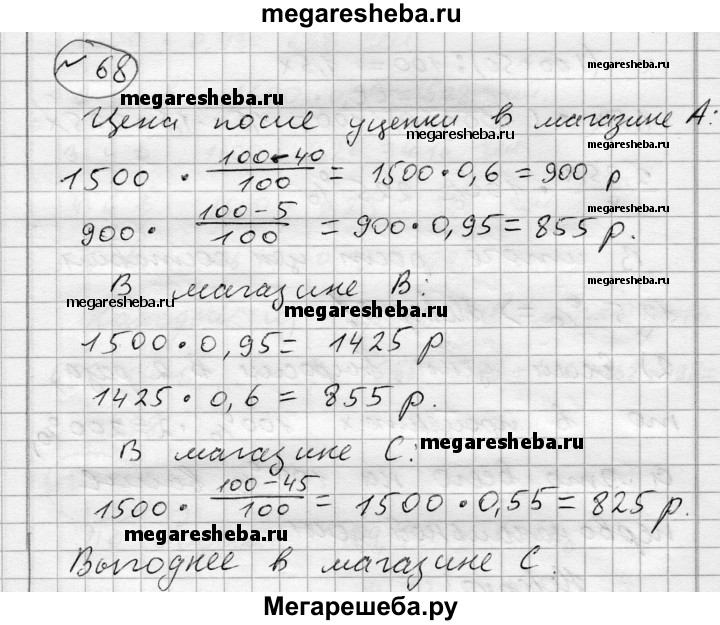 megaresheba.ru
№ 68
megaresheba.ru
megaresheba.ru
Цена после уценки в магазине А:
megaresheba.ru
1500 · (100-40)/100 = 1500·0,6 = 900 р
megaresheba.ru
900 · (100-5)/100 = 900·0,95 = 855 р.
megaresheba.ru
В магазине В:
megaresheba.ru
megaresheba.ru
megaresheba.ru
1500·0,95 = 1425 р
1425·0,6 = 855 р.
В магазине С:
megaresheba.ru
1500 · (100-45)/100 = 1500·0,55 = 825 р.
megaresheba.ru
Выгоднее в магазине С.
Мегарешеба.ру